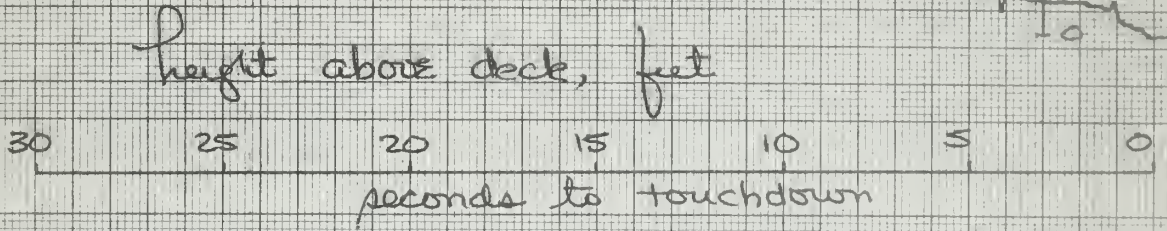 10
height above deck, feet
30 25 20 15 10 5 0
seconds to touchdown